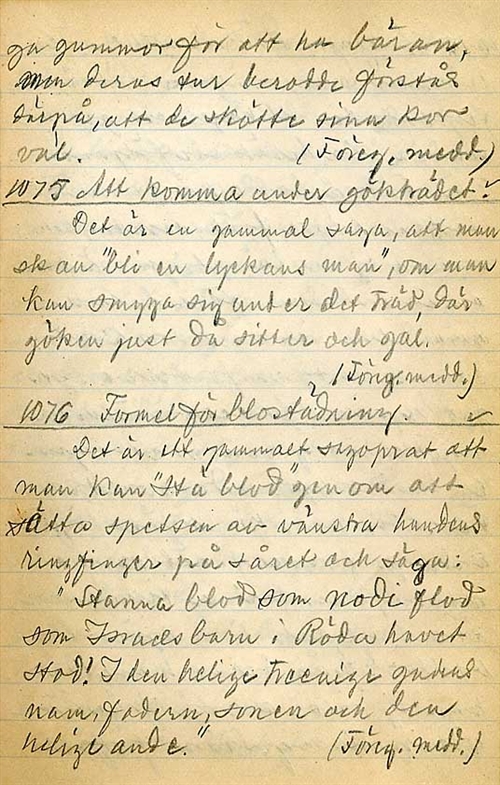 ga gummor för att ha bäran,
men deras tur berodde förstås
därpå, att de skötte sina kor
väl. (Föreg. medd.)
1075 Att komma under gökträdet.
Det är en gammal saga, att man
skau "bli en lyckans man", om man
kan smyga sig under det träd, där
göken just då sitter och gal.
(Föreg. medd.)
1076 Formel för blostädning
Det är ett gammalt sagoprat att
man kan "stä blod" genom att
sätta spetsen av vänstra handens
ringfinger på såret och säga:
"Stanna blod som nodi flod
som Israels barn i Röda havet
stod! I den helige treenige guden
nam, fadern, sonen och den
helige ande." (Föreg. medd.)